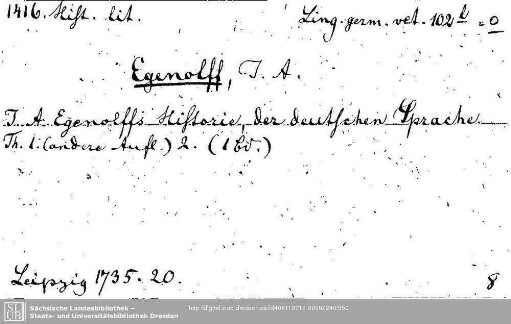 1416. Hist. lit. Ling. germ. vet. 102 b = 0
Egenolff, J. A.
J. A. Egenolffs Historie der deutschen Sprache.
Th. 1. (andere Aufl.) 2. (1 Bd.)
Leipzig 1735. 20. 8
SLUB Sächsische Landesbibliothek –
Staats- und Universitätsbibliothek Dresden